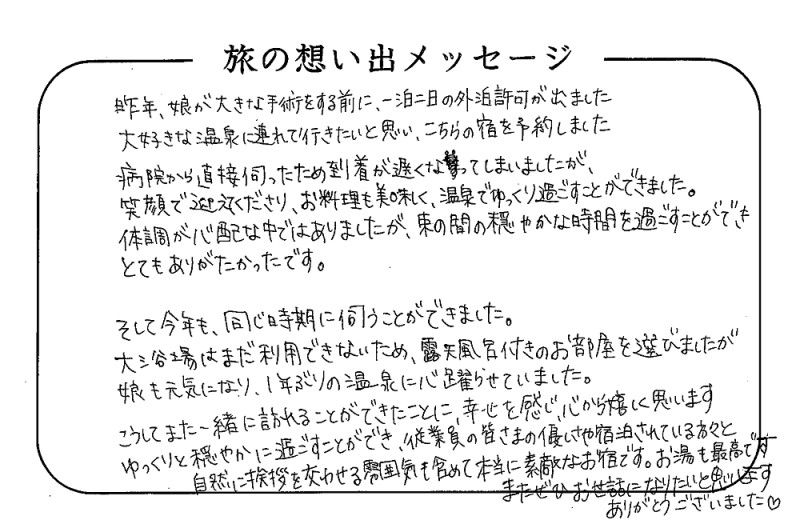 旅の想い出メッセージ
昨年、娘が大きな手術をする前に、一泊二日の外泊許可が出ました
大好きな温泉に連れて行きたいと思い、こちらの宿を予約しました
病院から直接伺ったため到着が遅くなってしまいましたが、
笑顔で迎えてくださり、お料理も美味しく、温泉でゆっくり過ごすことができました。
体調が心配な中ではありましたが、束の間の穏やかな時間を過ごすことができ
とてもありがたかったです。
そして今年も、同じ時期に伺うことができました。
大浴場はまだ利用できないため、露天風呂付きのお部屋を選びましたが
娘も元気になり、1年ぶりの温泉に心躍らせていました。
こうしてまた一緒に訪れることができたことに、幸せを感じ、心から嬉しく思います
ゆっくりと穏やかに過ごすことができ、従業員の皆さまの優しさや宿泊されている方々と
自然に挨拶を交わせる雰囲気も含めて本当に素敵なお宿です。お湯も最高です
またぜひお世話になりたいと思います
ありがとうございました♡